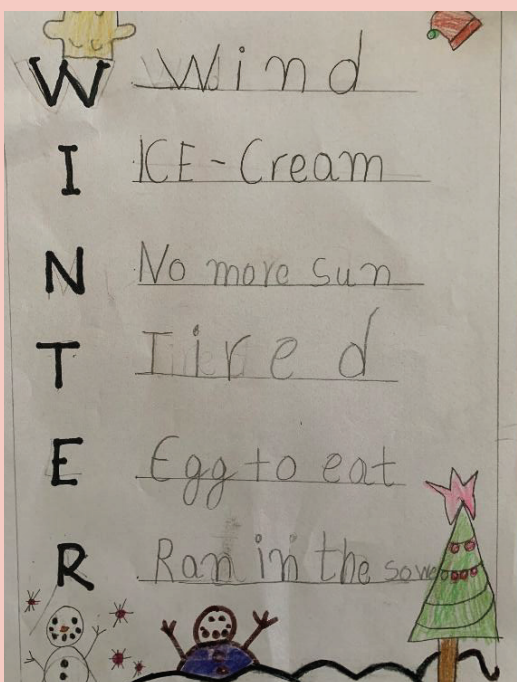 W Wind
I ICE-Cream
N No more sun
T Tired
E Egg to eat
R Ran in the sowe